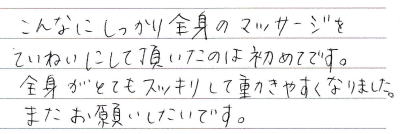 こんなにしっかり全身のマッサージを
ていねいにして頂いたのは初めてです。
全身がとてもスッキリして動きやすくなりました。
またお願いしたいです。